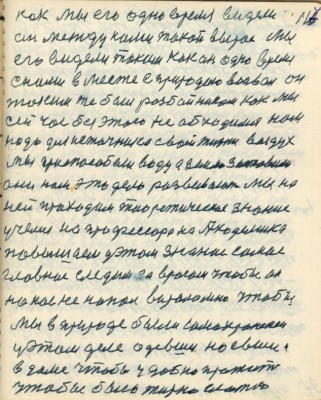 как мы его одно время видели
он между нами такой вырос мы
его видели таким как он одно время
с нами в месте с природою он
таким же был разбойником как мы
сей час без этого не обходимся нам
надо для источника свой воздух
мы приспособили воду а землю
они нам это дело развивают мы на
ней проходим теоретическое знание
учения на профессора на Академика
повышаем у этом знание самое
главное следим за врагом чтобы он
на нас не напал чтобы
мы в природе были
у этом деле одевши наевши
в доме чтобы удобно прожить
чтобы было жирно сладко